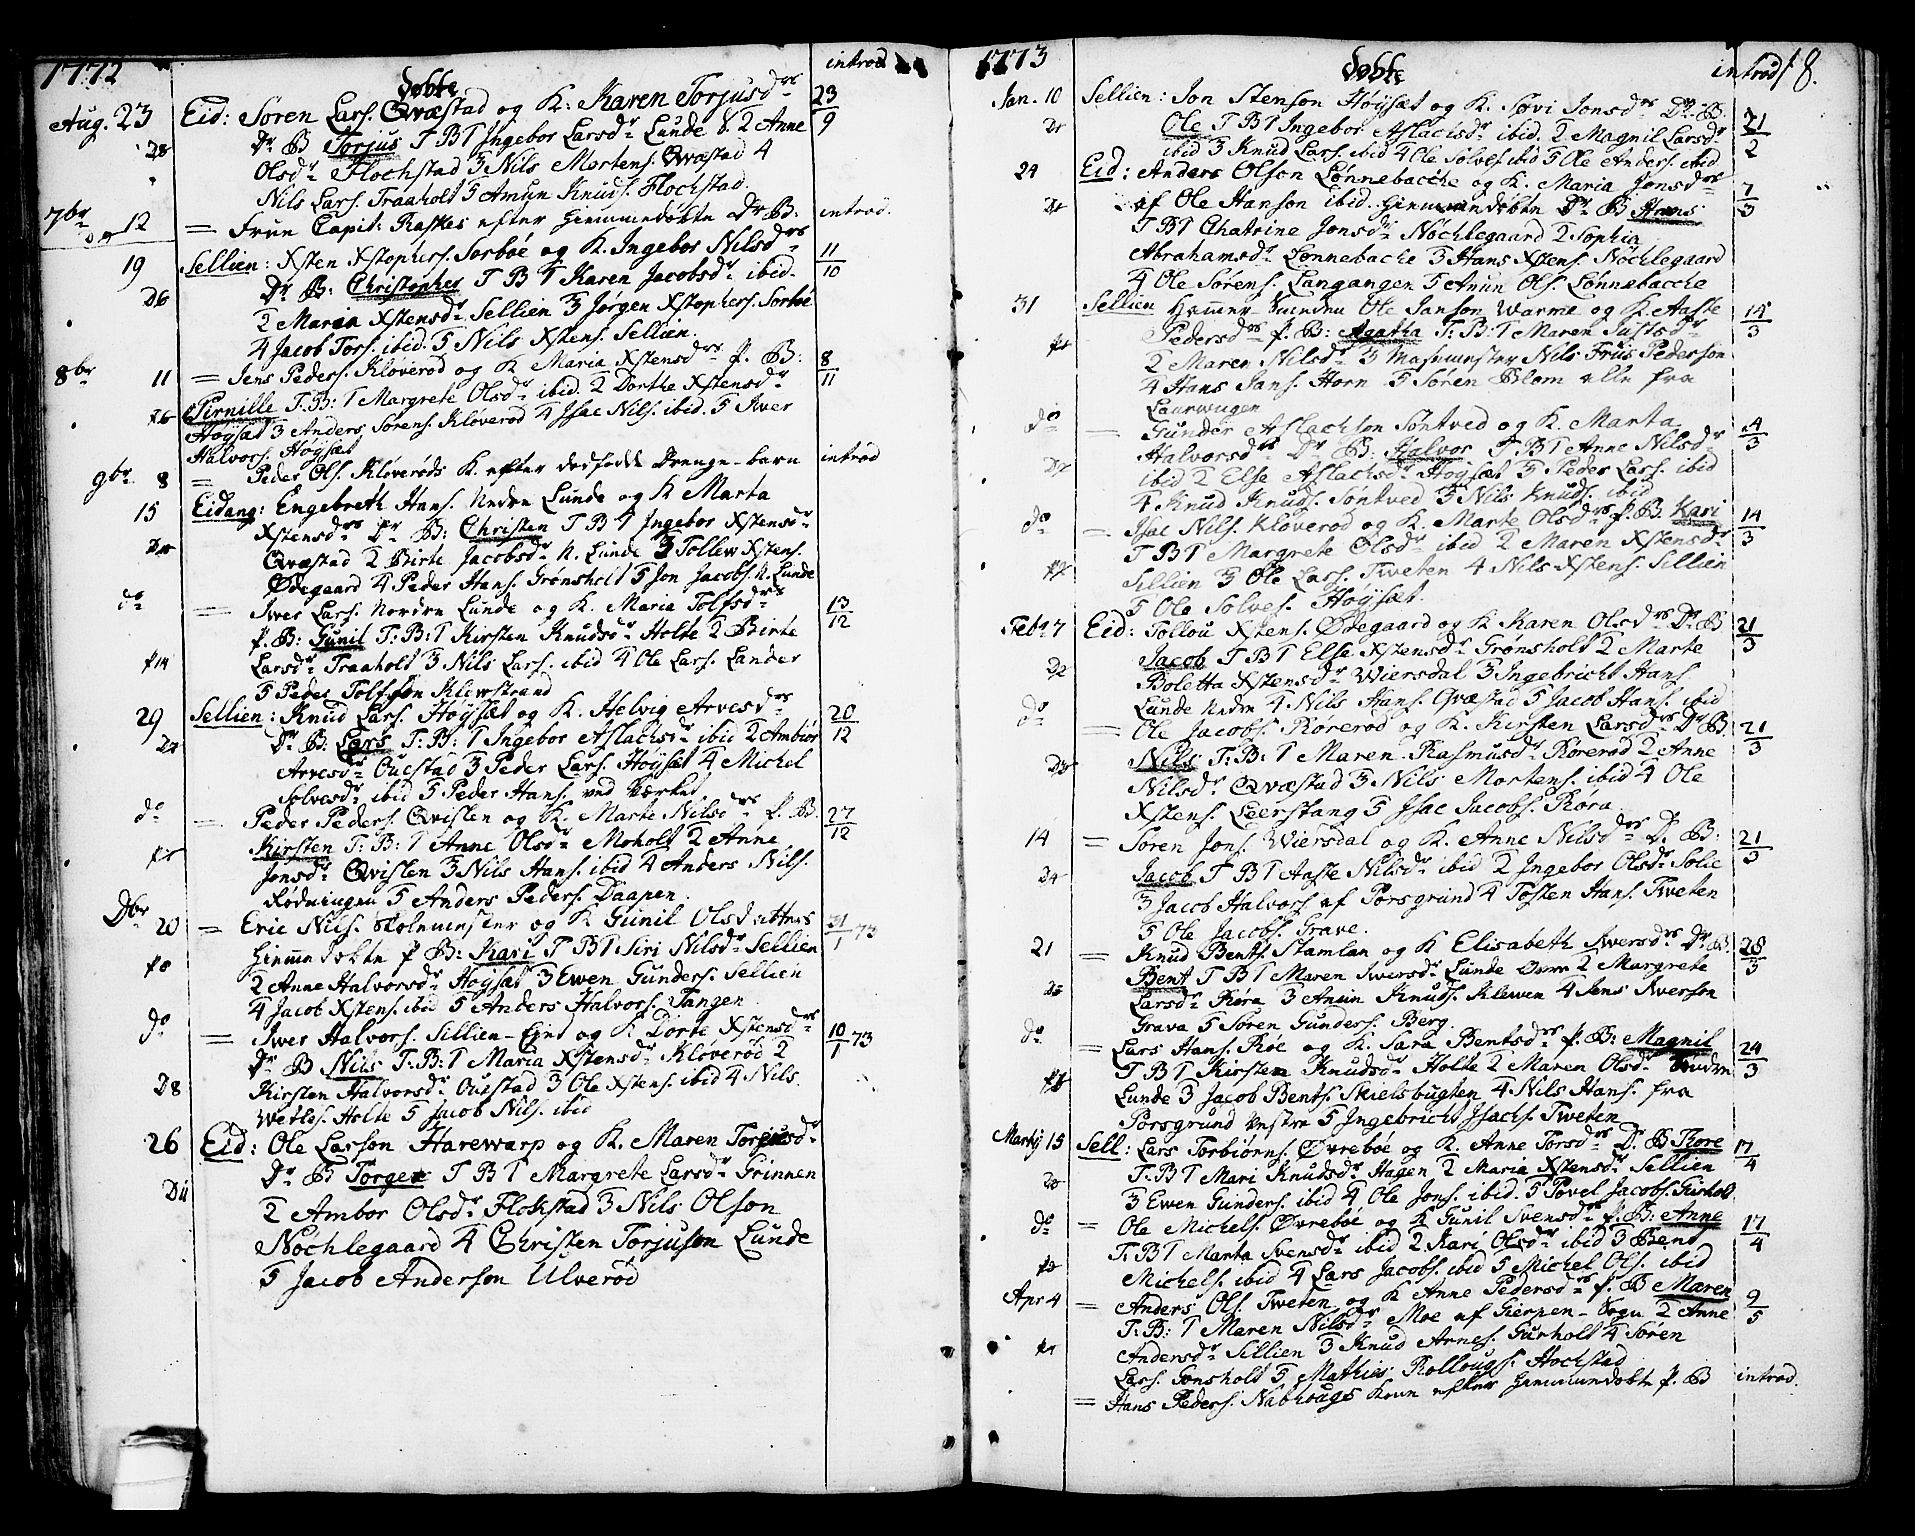 1772
döbte
introd
Aug. 23 Eid: Sören Lars. Qvæstad og K: Karen Torjusdr 23/9
Dr B Torjus T B 1 Ingebor Larsdr Lunde 2 Anne
28 Olsdr Flochstad 3 Nils Mortens. Qvæstad 4
Nils Lars. Traaholt 5 Amun Knuds. Flochstad.
7br 12 = Fruen Capit: Raskes efter hiemmedöbte Dr B: introd.
19 Sellien: Xsten Xstophers. Sorböe og K. Ingebor Nilsdr 11/10
Dr B: Christopher T B 1 Karen Jacobsdr ibid.
D6 2 Maria Xstensdr Sellien 3 Jörgen Xstophers. Sorböe
4 Jacob Tors. ibid. 5 Nils Xstens. Sellien.
8br 11 = Jens Peders. Klöveröd og K Maria Xstensdr P. B: 8/11
Pernille T: B: 1 Margrete Olsdr ibid. 2 Dorthe Xstensdr
Höysæt 3 Anders Sörens. Klöveröd 4 Isac Nils. ibid. 5 Iver
Halvors. Höysæt
9br 8 = Peder Ols. Klöveröds K. efter dödfödde Drenge-barn introd
15 Eidang: Engebreth Hans. Nedre Lunde og K Marta
Xstensdr Dr B: Christen T B 1 Ingebor Xstensdr
Qvæstad 2 Birte Jacobsdr N. Lunde 3 Tollew Xstens.
Ödegaard 4 Peder Hans. Grönsholt 5 Jon Jacobs. N. Lunde
do = Iver Lars. Nordre Lunde og K. Maria Tolfsdr 13/12
P. B: Gunil T: B: 1 Kirsten Knudsdr Holte 2 Birte
P14 Larsdr Traaholt 3 Nils Lars. ibid 4 Ole Lars. Lander
5 Peder Tolfson Klewstrand
29 Sellien: Knud Lars. Höysæt og K. Helvig Arvesdr 20/12
Dr B: Lars T: B: 1 Ingebor Aslachsdr ibid 2 Ambior
Arvesdr Ouestad 3 Peder Lars. Höysæt 4 Michel
Solvesdr ibid 5 Peder Hans. ved Værket.
do = Peder Peders. Qvisten og K. Marte Nilsdr P. B. 27/12
Kirsten T: B: 1 Anne Olsdr Moholt 2 Anne
Jonsdr Qvisten 3 Nils Hans. ibid 4 Anders Nils.
Rödningen 5 Anders Peders. Daapen.
Dbr 20 = Eric Nils. Skolemester og K Gunil Olsdatters 31/1 73
hiemme döbte P B: Kari T B 1 Siri Nilsdr Sellien
2 Anne Halvorsdr Höysæt 3 Ewen Gunders. Sellien
4 Jacob Xstens. ibid 5 Anders Halvors. Tangen
do = Iver Halvors. Sellien-Ejed og K. Dorte Xstensdr 10/1 73
Dr B Nils T: B: 1 Maria Xstensdr Klöveröd 2
D8 Kirsten Halvorsdr Ouestad 3 Ole Xstens. ibid 4 Nils
Wetles. Holte 5 Jacob Nils. ibid
26 Eid: Ole Larson Harewarp og K. Maren Torjusdr
Dr B Torger T B 1 Margrete Larsdr Grinnen
D11 2 Ambor Olsdr Flokstad 3 Nils Olson
Nöchlegaard 4 Christen Torjuson Lunde
5 Jacob Anderson Ulveröd
1773
döbte
introd 18.
Jan. 10 Sellien: Jon Stenson Höysæt og K. Sövi Jonsdr Dr B. 21/2
Ole T B 1 Ingebor Aslachsdr ibid. 2 Magnil Larsdr
ibid 3 Knud Lars. ibid 4 Ole Solves. ibid 5 Ole Anders. ibid
24 Eid: Anders Olson Lönnebacche og K. Maria Jonsdr 7/3
af Ole Hanson ibid. hiemmedöbte Dr B Hans
T B 1 Chatrine Jonsdr Nöchlegaard 2 Sophia
Abrahamsdr Lönnebache 3 Hans Xstens. Nöchlegaard
4 Ole Sörens. Langangen 5 Anun Ols. Lönnebacche
31 Sellien Hammer-Smeden Ole Janson Warme og K. Aaste 14/3
Pedersdr P. B: Agatha T: B: 1 Maren Justsdr
2 Maren Nilsdr 3 Masmester Nils Friis Pederson
4 Hans Jans. Horn 5 Sören Blom alle fra
Laurwigen
do = Gunder Aslachson Tontved og K. Marta 14/3
Halvorsdr Dr B: Halvor T B 1 Anne Nilsdr
ibid 2 Else Aslachsdr Höysæt 3 Peder Lars. ibid
4 Knud Knuds. Tontved 5 Nils Knuds. ibid
do = Isac Nils. Klöveröd og K. Marte Olsdr P. B. Kari 14/3
T B 1 Margrete Olsdr ibid 2 Maren Xstensdr
Sellien 3 Ole Lars. Tweten 4 Nils Xstens. Sellien
5 Ole Solves. Höysæt.
Feb. 7 Eid: Tollou Xstens. Ödegaard og K Karen Olsdr Dr B 21/3
Jacob T B 1 Else Xstensdr Grönsholt 2 Marte
Boletta Xstensdr Wiersdal 3 Ingebricht Hans.
Lunde nedre 4 Nils Hans. Qvæstad 5 Jacob Hans. ibid
do = Ole Jacobs. Röreröd og K. Kirsten Larsdr Dr B 21/3
Nils T: B: 1 Maren Rasmusdr Röreröd 2 Anne
Nilsdr Qvæstad 3 Nils Mortens. ibid 4 Ole
Xstens. Leerstang 5 Isac Jacobs. Röra
14 = Sören Jons. Wiersdal og K. Anne Nilsdr D. B: 21/3
Jacob T B 1 Aaste Nilsdr ibid 2 Ingebor Olsdr Solie
3 Jacob Halvors. af Porsgrund 4 Tosten Hans. Tweten
5 Ole Jacobs. Grave.
21 = Knud Bents. Stamlan og K Elisabeth Iversdr Dr B: 28/3
Bent T B 1 Maren Iversdr Lunde 2 Margrete
Larsdr Röra 3 Anun Knuds. Klewen 4 Jens Iverson
Grava 5 Sören Gunders. Berg.
do = Lars Hans. Röe og K. Sara Bentsdr P. B: Magnil 24/3
T B 1 Kirsten Knudsdr Holte 2 Maren Olsdr
Lunde 3 Jacob Bents. Skielsbugten 4 Nils Hans. fra
Porsgrund vestre 5 Ingebricht Isachs. Tweten
Martij 15 Sell: Lars Torbiörns. Övreböe og K. Anne Torsdr Dr B Tore 17/4
T: B 1 Mari Knudsdr Hagen 2 Maria Xstensdr Sellien
3 Ewen Gunders. ibid 4 Ole Jons. ibid. 5 Povel Jacobs. Gurholt
do = Ole Michels. Övreböe og K Gunil Svensdr P. B: Anne 17/4
T: B 1 Marta Svensdr ibid 2 Kari Olsdr ibid 3 Bent
Michels. ibid 4 Lars Jacobs. ibid 5 Michel Ols. ibid
Apr 4 = Anders Ols. Tweten og K Anne Pedersdr P. B Maren 9/5
T: B: 1 Maren Nilsdr Moe af Gierpen-Sogn 2 Anne
Andersdr Sellien 3 Knud Arnes. Gurholt 4 Sören
Lars. Tonsholt 5 Mathies Rollougs. Hochstad
= Hans Peders. Nablougs Kone efter hiemmedöbte P. B introd.